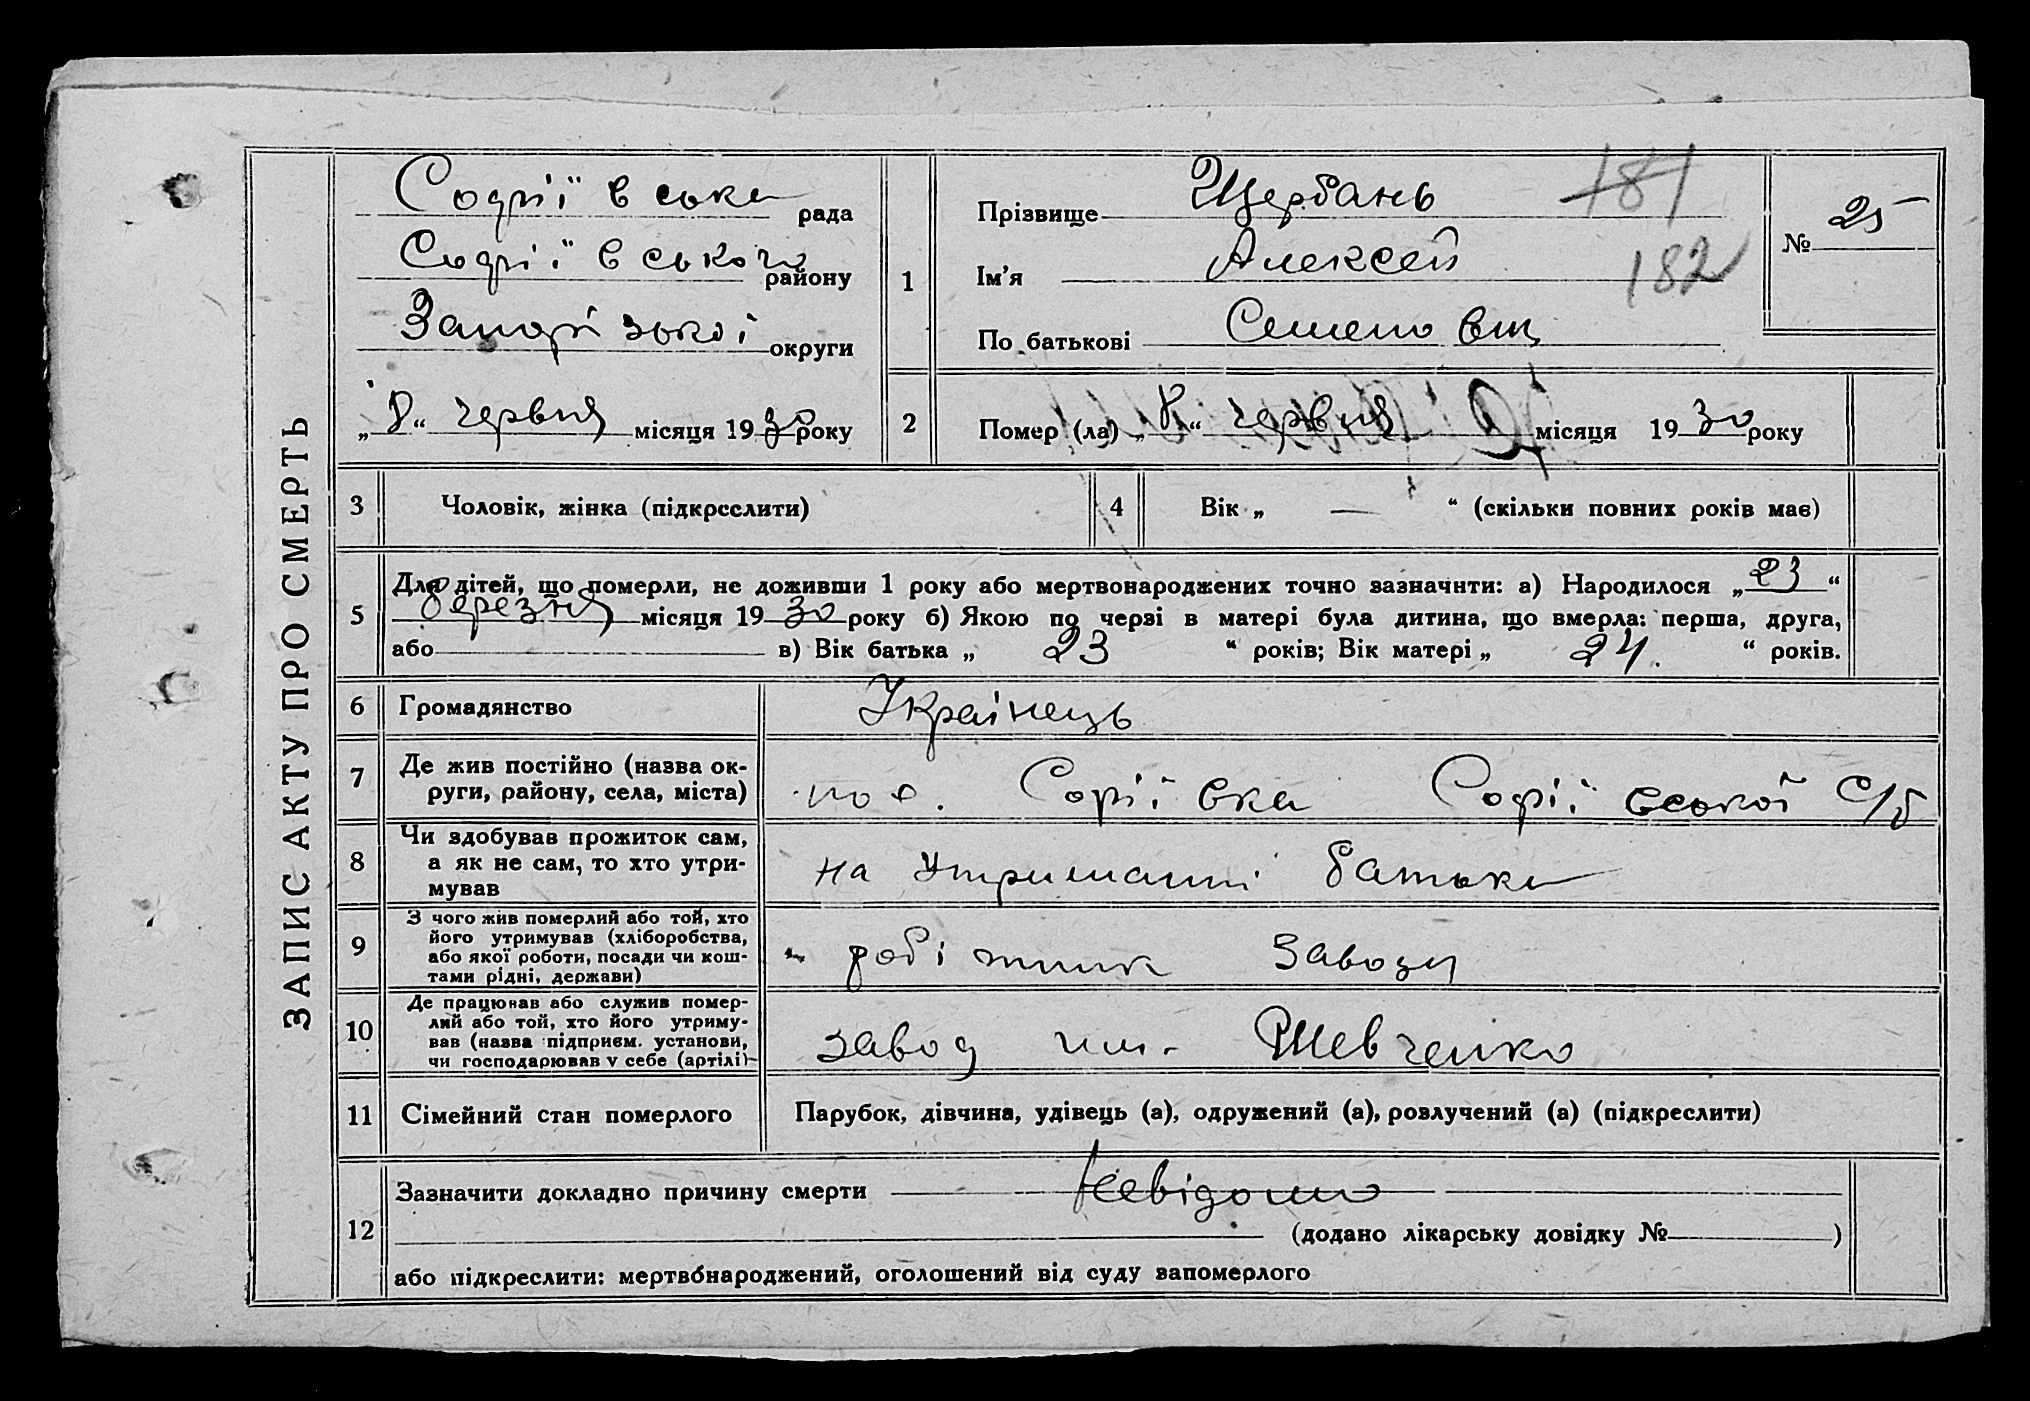 ЗАПИС АКТУ ПРО СМЕРТЬ
Софіївська рада
Софіївського району
Запорізької округи
„8“ червня місяця 1930 року
1
Прізвище Щербань
Ім’я Алексей
По батькові Семенович
181
182
№ 25
2
Помер (ла) „8“ червня місяця 1930 року
3 Чоловік, жінка (підкреслити)
4 Вік „ — “ (скільки повних років має)
5
Для дітей, що померли, не доживши 1 року або мертвонароджених точно зазначити: а) Народилося „23“
березня місяця 1930 року б) Якою по черзі в матері була дитина, що вмерла: перша, друга,
або в) Вік батька „ 23 “ років; Вік матері „ 24. “ років.
6 Громадянство Українець
7 Де жив постійно (назва ок-
руги, району, села, міста)
пос. Софіївка Софіївської с/р
8 Чи здобував прожиток сам,
а як не сам, то хто утри-
мував
на утриманні батька
9 З чого жив померлий або той, хто
його утримував (хліборобства,
або якої роботи, посади чи кош-
тами рідні, держави)
робітник заводу
10 Де працював або служив помер-
лий або той, хто його утриму-
вав (назва підприєм. установи,
чи господарював у себе (артілі)
завод им. Шевченко
11 Сімейний стан померлого
Парубок, дівчина, удівець (а), одружений (а), розлучений (а) (підкреслити)
12
Зазначити докладно причину смерти Невідомо
(додано лікарську довідку № )
або підкреслити: мертвонароджений, оголошений від суду запомерлого